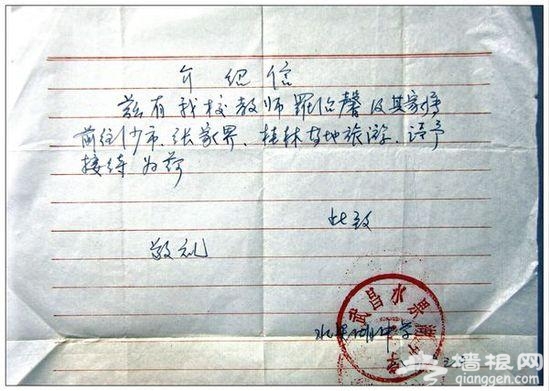 介绍信
兹有我校教师罗伯馨及其家属
前往沙市、张家界、桂林等地旅游、请予
接待为荷
此致
敬礼
水果湖中学
武昌水果湖中学
墙根网
qianggen.com